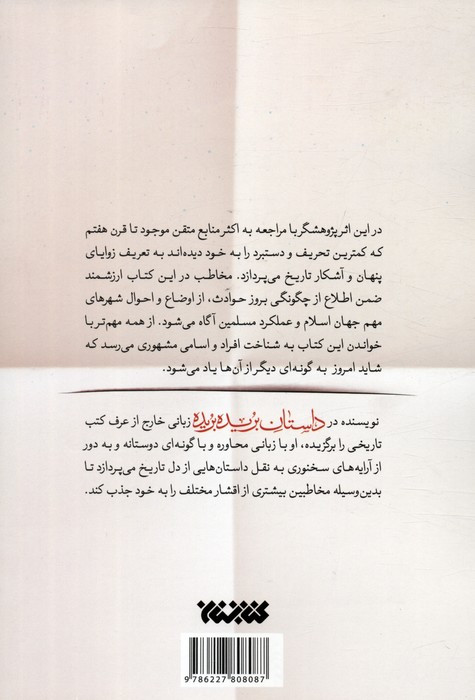 در این اثر پژوهشگر با مراجعه به اکثر منابع متقن موجود تا قرن هفتم
که کمترین تحریف و دستبرد را به خود دیده‌اند به تعریف زوایای
پنهان و آشکار تاریخ می‌پردازد. مخاطب در این کتاب ارزشمند
ضمن اطلاع از چگونگی بروز حوادث، از اوضاع و احوال شهرهای
مهم جهان اسلام و عملکرد مسلمین آگاه می‌شود. از همه مهم‌تر با
خواندن این کتاب به شناخت افراد و اسامی مشهوری می‌رسد که
شاید امروز به گونه‌ای دیگر از آن‌ها یاد می‌شود.
نویسنده در داستان بریده بریده زبانی خارج از عرف کتب
تاریخی را برگزیده، او با زبانی محاوره و با گونه‌ای دوستانه و به دور
از آرایه‌های سخنوری به نقل داستان‌هایی از دل تاریخ می‌پردازد تا
بدین‌وسیله مخاطبین بیشتری از اقشار مختلف را به خود جذب کند.
9 786227 808087